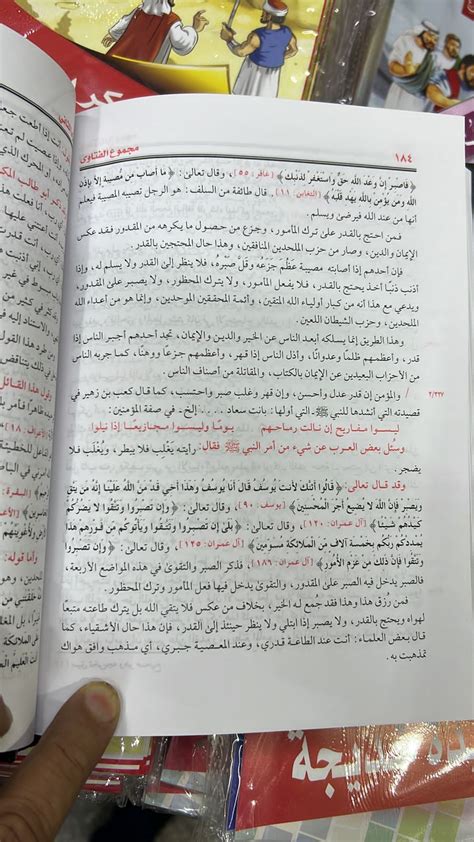 ١٨٤
مجموع الفتاوى
﴿فاصبر إن وعد الله حق واستغفر لذنبك﴾ [غافر: ٥٥]، وقال تعالى: ﴿ما أصاب من مصيبة إلا بإذن
الله ومن يؤمن بالله يهد قلبه﴾ [التغابن: ١١]. قال طائفة من السلف: هو الرجل تصيبه المصيبة فيعلم
أنها من عند الله فيرضى ويسلم.
فمن احتج بالقدر على ترك المأمور، وجزع من حصول ما يكرهه من المقدور فقد عكس
الإيمان والدين، وصار من حزب الملحدين المنافقين، وهذا حال المحتجين بالقدر.
فإن أحدهم إذا أصابته مصيبة عظم جزعه وقل صبره، فلا ينظر إلى القدر ولا يسلم له، وإذا
أذنب ذنبًا أخذ يحتج بالقدر، فلا يفعل المأمور، ولا يترك المحظور، ولا يصبر على المقدور،
ويدعي مع هذا أنه من كبار أولياء الله المتقين، وأئمة المحققين الموحدين، وإنما هو من أعداء الله
الملحدين، وحزب الشيطان اللعين.
وهذا الطريق إنما يسلكه أبعد الناس عن الخير والدين والإيمان، تجد أحدهم أجبر الناس إذا
قدر، وأعظمهم ظلمًا وعدوانًا، وأذل الناس إذا قهر، وأعظمهم جزعًا ووهنًا، كما جربه الناس
من الأحزاب البعيدين عن الإيمان بالكتاب، والمقاتلة من أصناف الناس.
٢/٣٢٧
/ والمؤمن إن قدر عدل وأحسن، وإن قهر وغلب صبر واحتسب، كما قال كعب بن زهير في
قصيدته التي أنشدها للنبي ﷺ التي أولها: بانت سعاد ... إلخ - في صفة المؤمنين:
ليسوا مفاريح إن نالت رماحهم يومًا وليسوا مجازيعًا إذا نيلوا
وسئل بعض العرب عن شيء من أمر النبي ﷺ فقال: رأيته يغلب فلا يبطر، ويُغلب فلا
يضجر.
وقد قال تعالى: ﴿قالوا أئنك لأنت يوسف قال أنا يوسف وهذا أخي قد من الله علينا إنه من يتق
ويصبر فإن الله لا يضيع أجر المحسنين﴾ [يوسف: ٩٠]، وقال تعالى: ﴿وإن تصبروا وتتقوا لا يضركم
كيدهم شيئا﴾ [آل عمران: ١٢٠]، وقال تعالى: ﴿بلى إن تصبروا وتتقوا ويأتوكم من فورهم هذا
يمددكم ربكم بخمسة آلاف من الملائكة مسومين﴾ [آل عمران: ١٢٥]، وقال تعالى: ﴿وإن تصبروا
وتتقوا فإن ذلك من عزم الأمور﴾ [آل عمران: ١٨٦]، فذكر الصبر والتقوى في هذه المواضع الأربعة،
فالصبر يدخل فيه الصبر على المقدور، والتقوى يدخل فيها فعل المأمور وترك المحظور.
فمن رُزق هذا وهذا فقد جُمع له الخير، بخلاف من عكس فلا يتقي الله بل يترك طاعته متبعًا
لهواه ويحتج بالقدر، ولا يصبر إذا ابتلي ولا ينظر حينئذ إلى القدر، فإن هذا حال الأشقياء، كما
قال بعض العلماء: أنت عند الطاعة قدري، وعند المعصية جبري، أي مذهب وافق هواك
تمذهبت به.